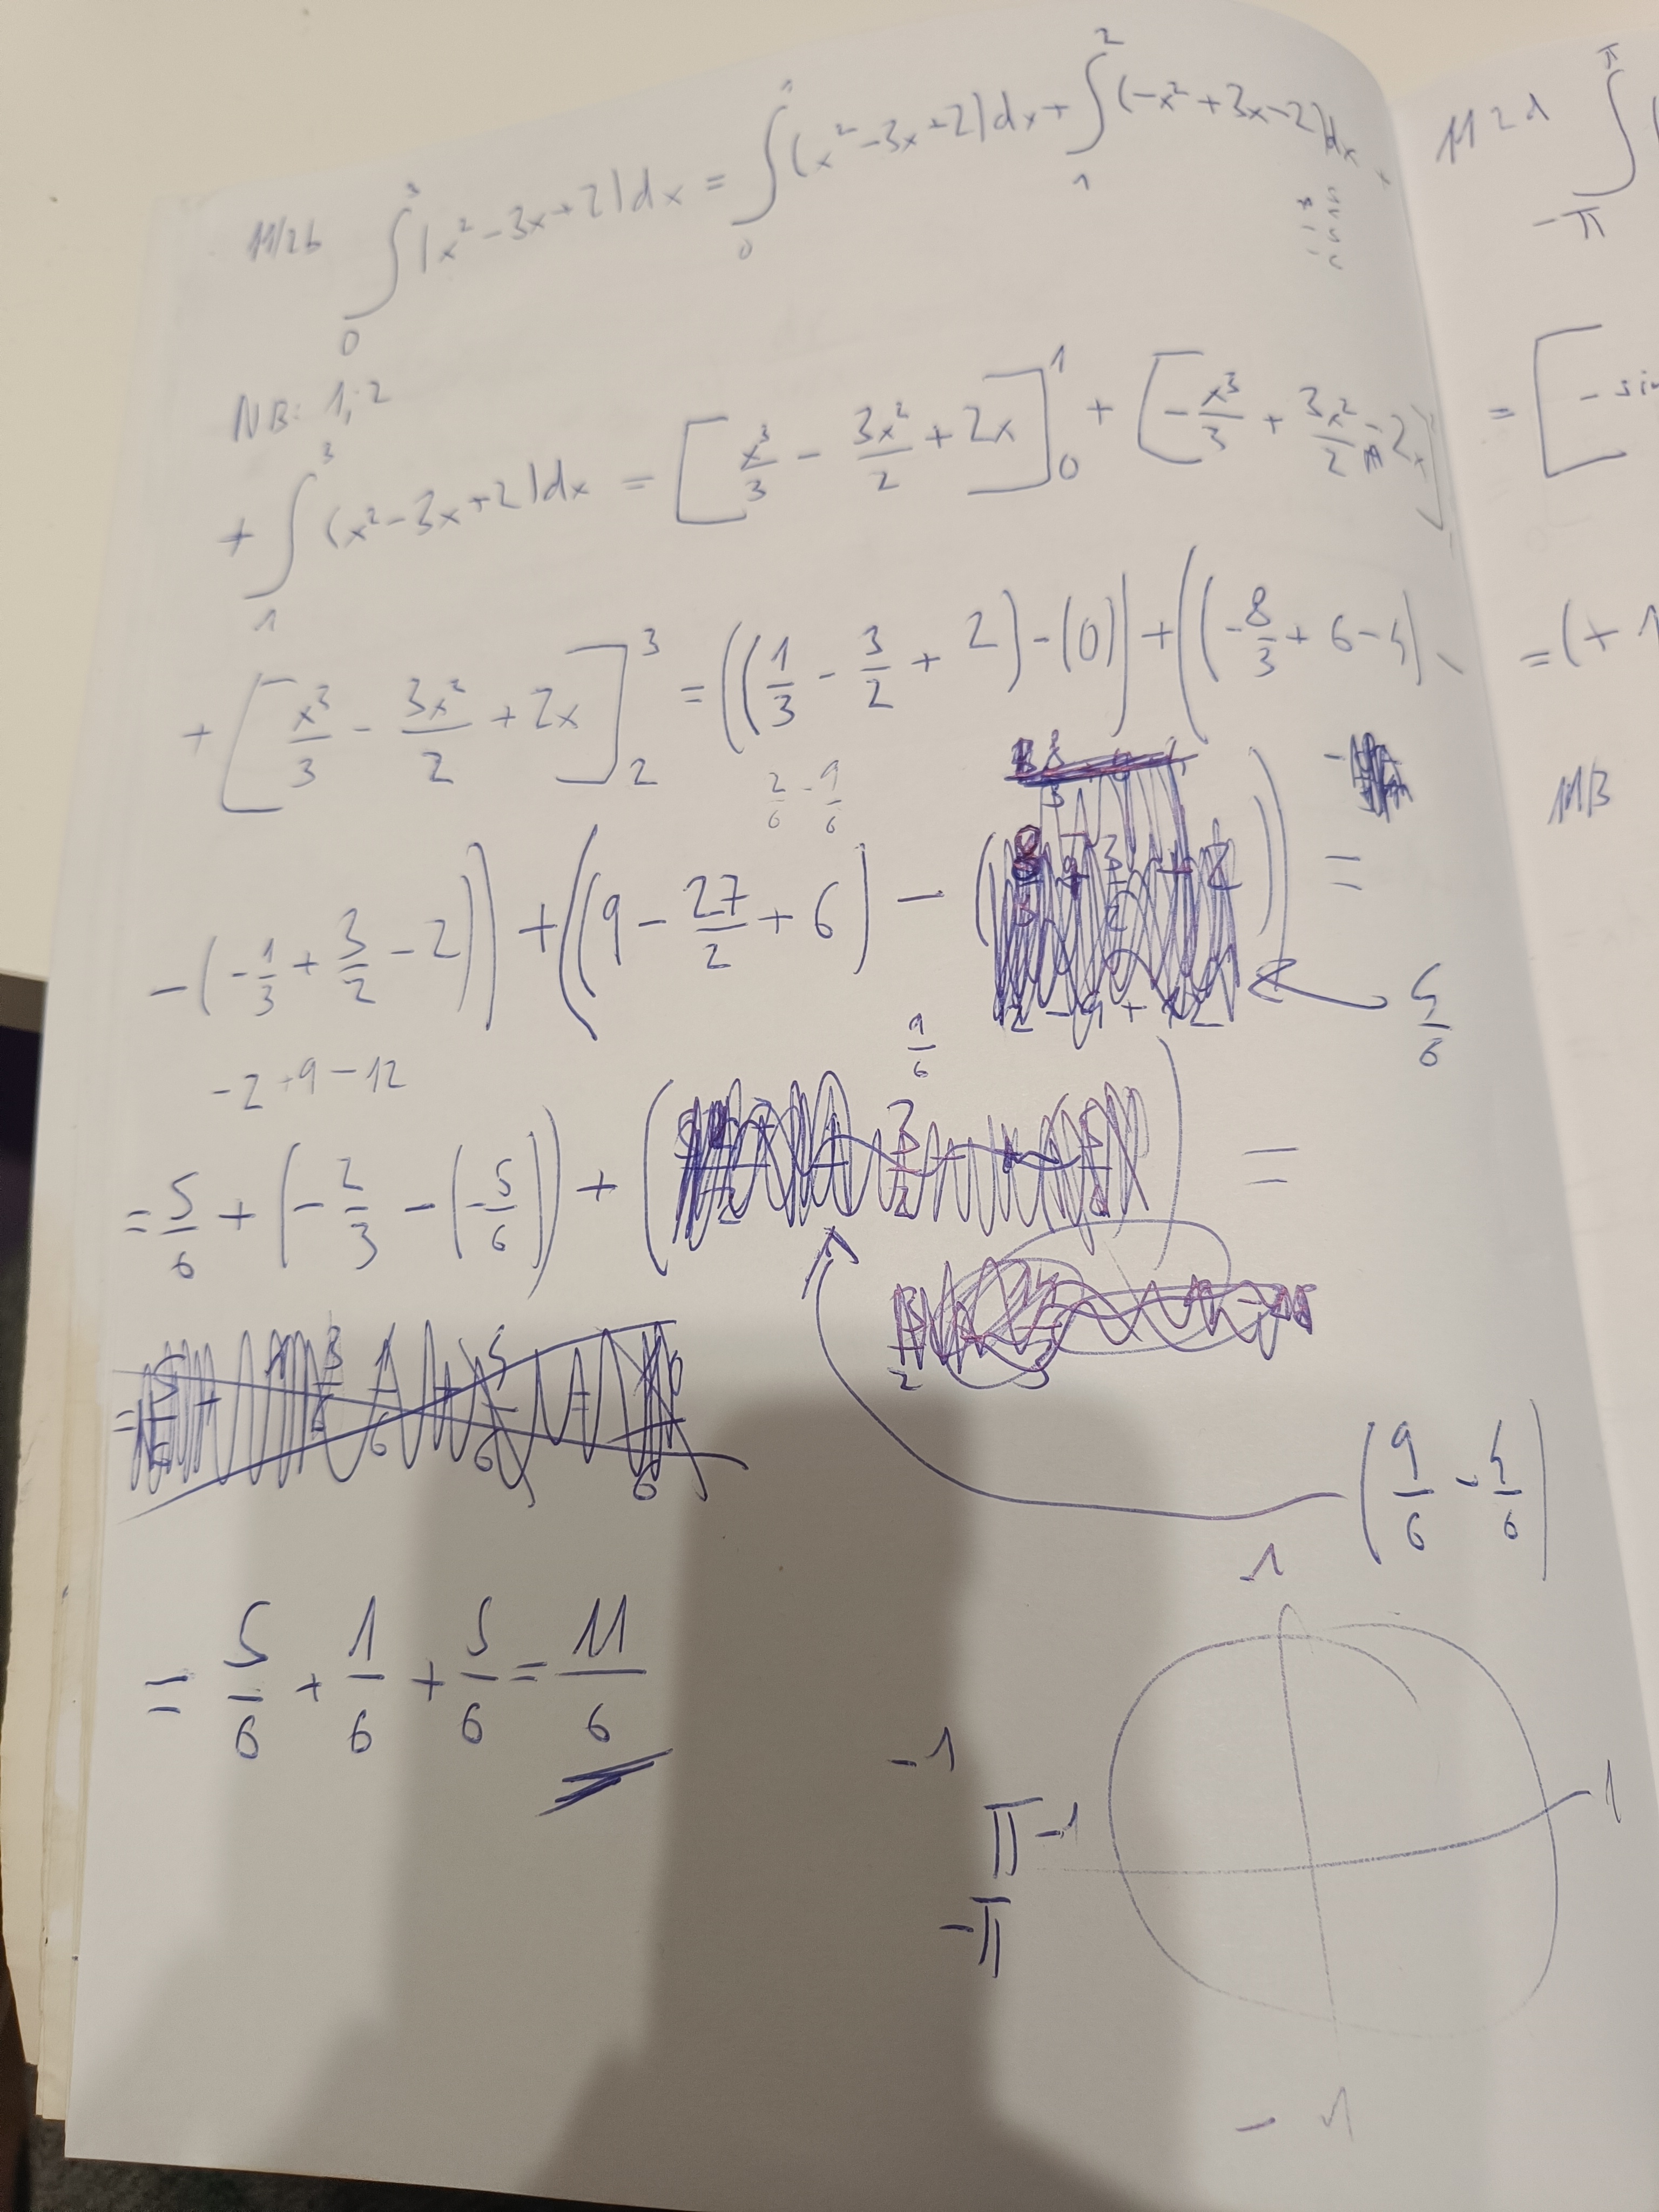 11/2b ∫₀³ |x²-3x+2|dx = ∫₀¹ (x²-3x+2)dx + ∫₁² (-x²+3x-2)dx
NB: 1; 2
+ ∫₁³ (x²-3x+2)dx = [x³/3 - 3x²/2 + 2x]₀¹ + [-x³/3 + 3x²/2 - 2x]
+ [x³/3 - 3x²/2 + 2x]₂³ = ((1/3 - 3/2 + 2) - (0)) + ((-8/3 + 6 - 4) -
2/6 - 9/6
- (-1/3 + 3/2 - 2)) + ((9 - 27/2 + 6) - ( )) =
4/6
-2+9-12
9/6
= 5/6 + (-2/3 - (-5/6)) + ( ) =
(9/6 - 4/6)
= 5/6 + 1/6 + 5/6 = 11/6
1
-1
π -1
1
-π
-1
11 2d ∫₋π^π (
= [- sin
= (+ 1
11/3